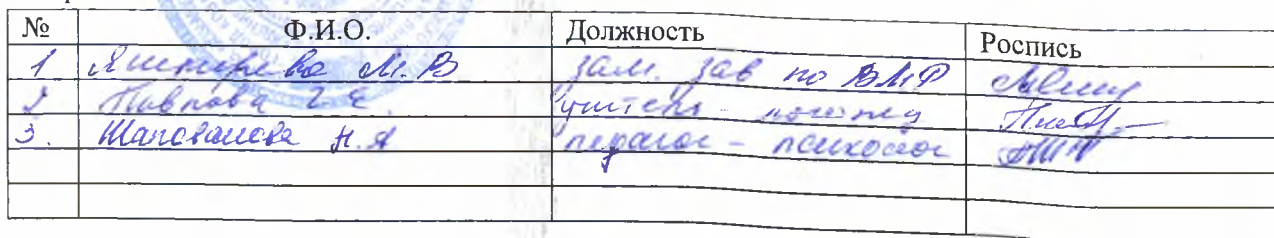 № Ф.И.О. Должность Роспись
1 М.В зам. зав по ВМР
2 Павлова Г.Е. учитель - логопед
3. Шаповалова Н.А педагог - психолог